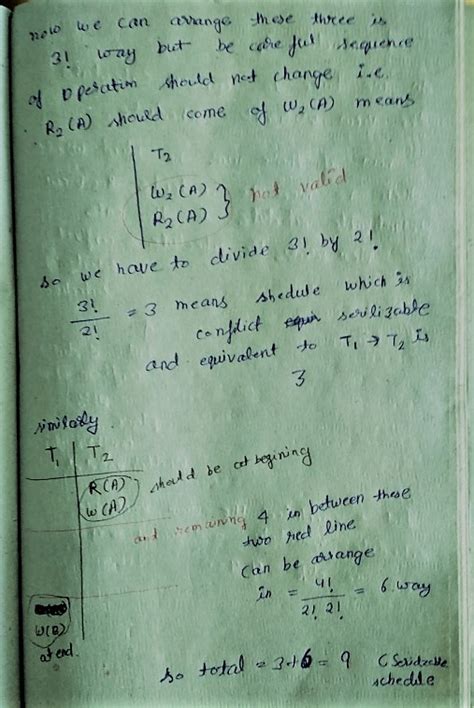 now we can arrange these three is
3! way but be careful sequence
of operation should not change i.e.
R₂(A) should come of W₂(A) means
T₂
W₂(A)
R₂(A) } not valid
so we have to divide 3! by 2!
3!/2! = 3 means shedule which is
conflict serilizable
and equivalent to T₁ → T₂ is
3
similarly
T₁ | T₂
R(A)
W(A) should be at begining
and remaining 4 in between these
two red line
can be arrange
in = 4!/2! 2! = 6 way
W(B)
at end.
so total = 3+6 = 9 C Serilizable
schedule